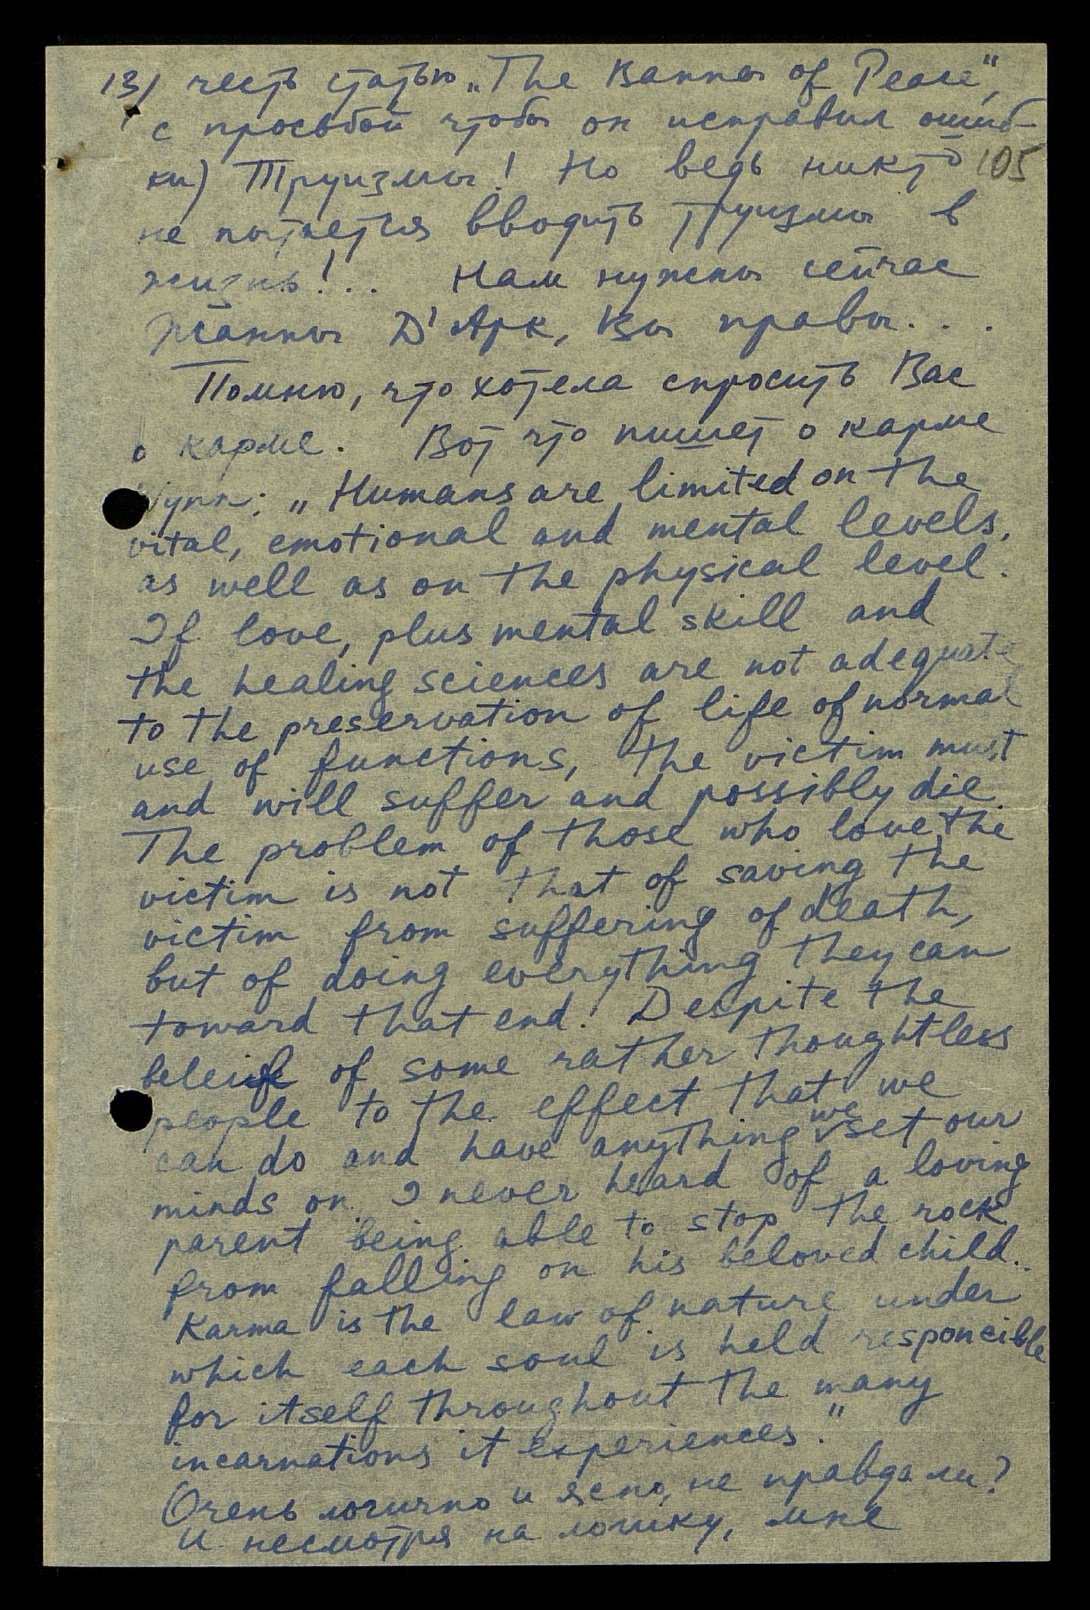 13/ честь статью „The Banner of Peace",
с просьбой чтобы он исправил ошиб-
ки) Труизмы! Но ведь никто 105
не пытается вводить труизмы в
жизнь!.. Нам нужны сейчас
Жанны Д'Арк, Вы правы...
Помню, что хотела спросить Вас
о карме. Вот что пишет о карме
Wynn: „Humans are limited on the
vital, emotional and mental levels,
as well as on the physical level.
If love, plus mental skill and
the healing sciences are not adequate
to the preservation of life of normal
use of functions, the victim must
and will suffer and possibly die.
The problem of those who love the
victim is not that of saving the
victim from suffering of death,
but of doing everything they can
toward that end. Despite the
beleif of some rather thoughtless
people to the effect that we
can do and have anything we set our
minds on. I never heard of a loving
parent being able to stop the rock
from falling on his beloved child..
Karma is the law of nature under
which each soul is held responcible
for itself throughout the many
incarnations it experiences."
Очень логично и ясно, не правда ли?
И несмотря на логику, мне